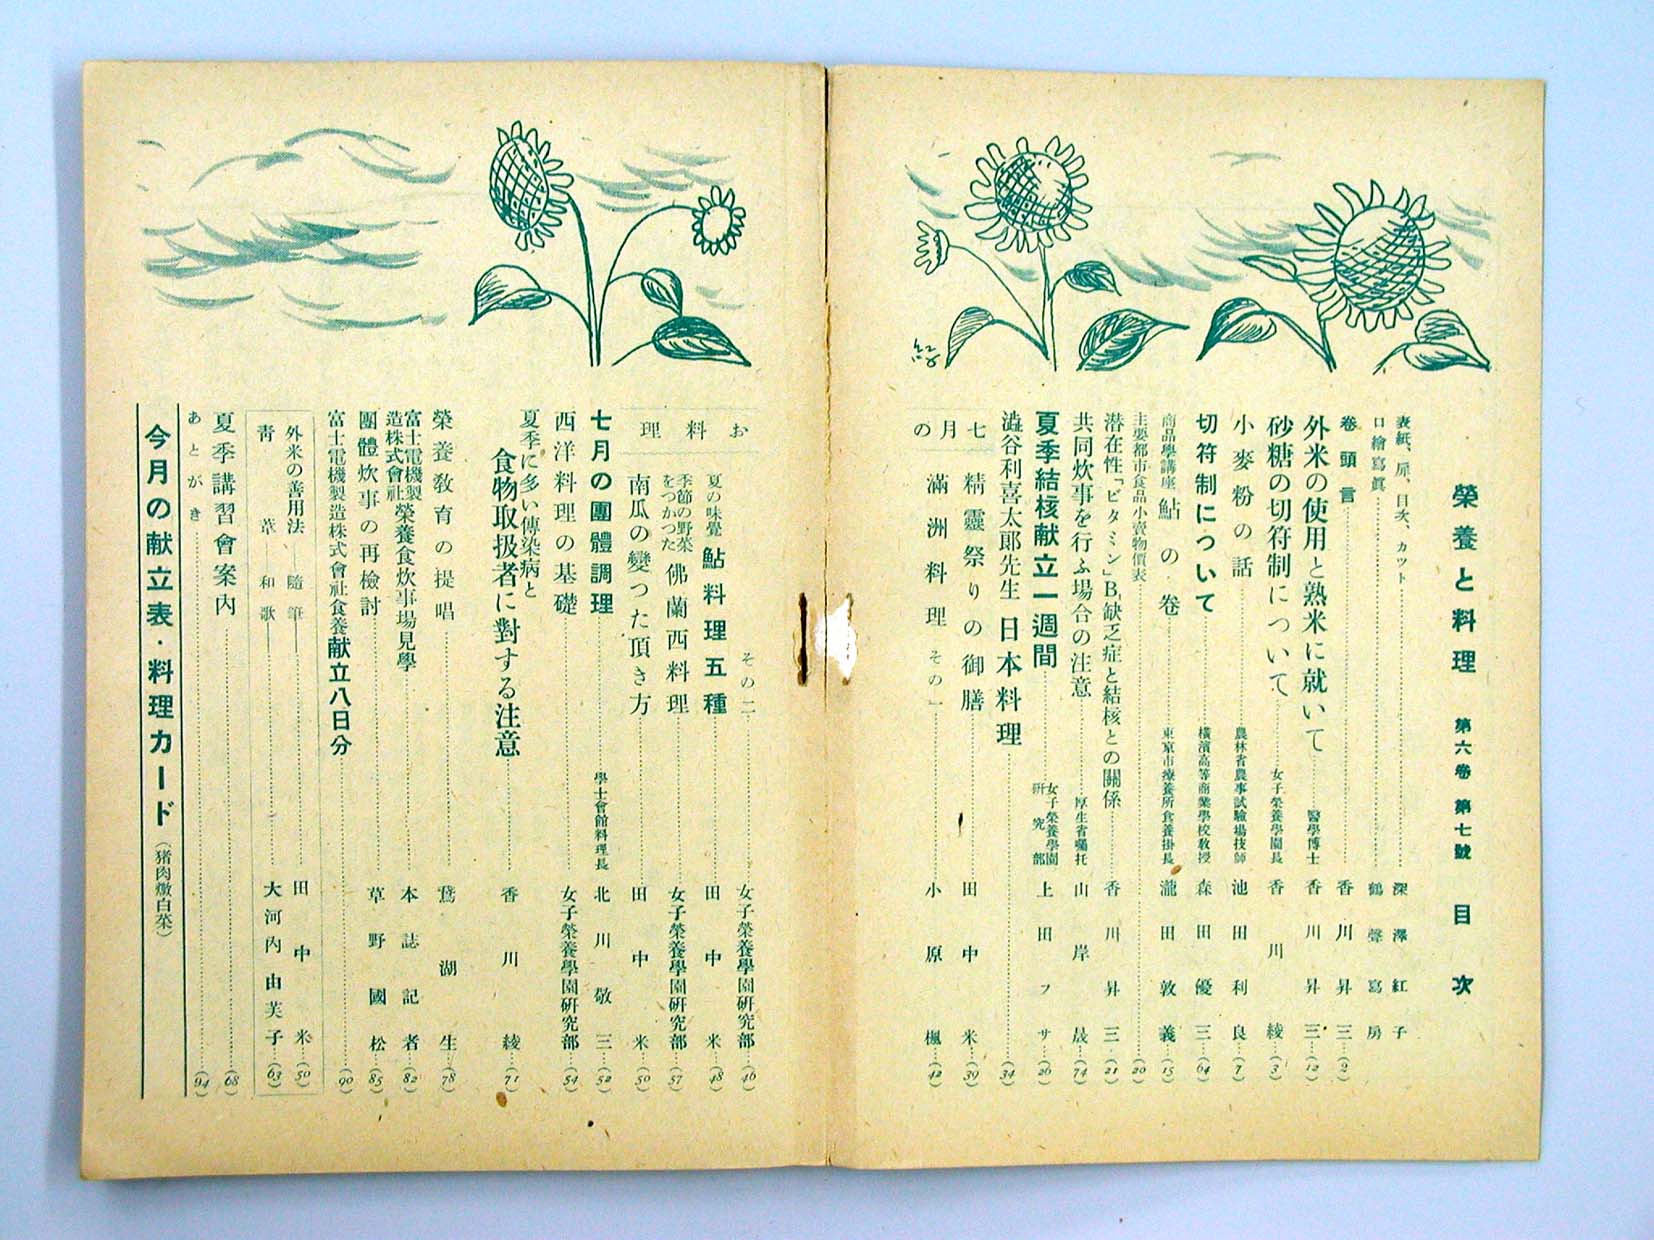 榮養と料理 第六卷 第七號 目次
表紙、扉、目次、カット 深澤紅子
口繪寫眞 鶴聲寫房
卷頭言 香川昇三 (2)
外米の使用と熟米に就いて 醫學博士 香川昇三 (12)
砂糖の切符制について 女子榮養學園長 香川綾 (3)
小麥粉の話 農林省農事試驗場技師 池田利良 (7)
切符制について 橫濱高等商業學校敎授 森田優三 (64)
商品學講座 鮎の卷 東京市療養所食養掛長 瀧田敦義 (15)
主要都市食品小賣物價表 (20)
潜在性「ビタミン」B₁缺乏症と結核との關係 香川昇三 (21)
共同炊事を行ふ場合の注意 厚生省囑托 山岸晟 (74)
夏季結核献立一週間 女子榮養學園研究部 上田フサ (26)
澁谷利喜太郎先生 日本料理 (34)
七月の
精靈祭りの御膳 田中米 (39)
滿洲料理 その一 小原楓 (42)
お料理
その二 女子榮養學園研究部 (46)
夏の味覺 鮎料理五種 田中米 (48)
季節の野菜をつかつた 佛蘭西料理 女子榮養學園研究部 (57)
南瓜の變つた頂き方 田中米 (50)
七月の團體調理 學士會館料理長 北川敬三 (52)
西洋料理の基礎 女子榮養學園研究部 (54)
夏季に多い傳染病と
食物取扱者に對する注意 香川綾 (71)
榮養敎育の提唱 鵞湖生 (78)
富士電機製造株式會社 榮養食炊事場見學 本誌記者 (82)
團體炊事の再檢討 草野國松 (85)
富士電機製造株式會社食養献立八日分 (90)
外米の善用法―隨筆― 田中米 (50)
靑葦―和歌― 大河內由芙子 (63)
夏季講習會案內 (68)
あとがき (94)
今月の献立表・料理カード (猪肉燉白菜)